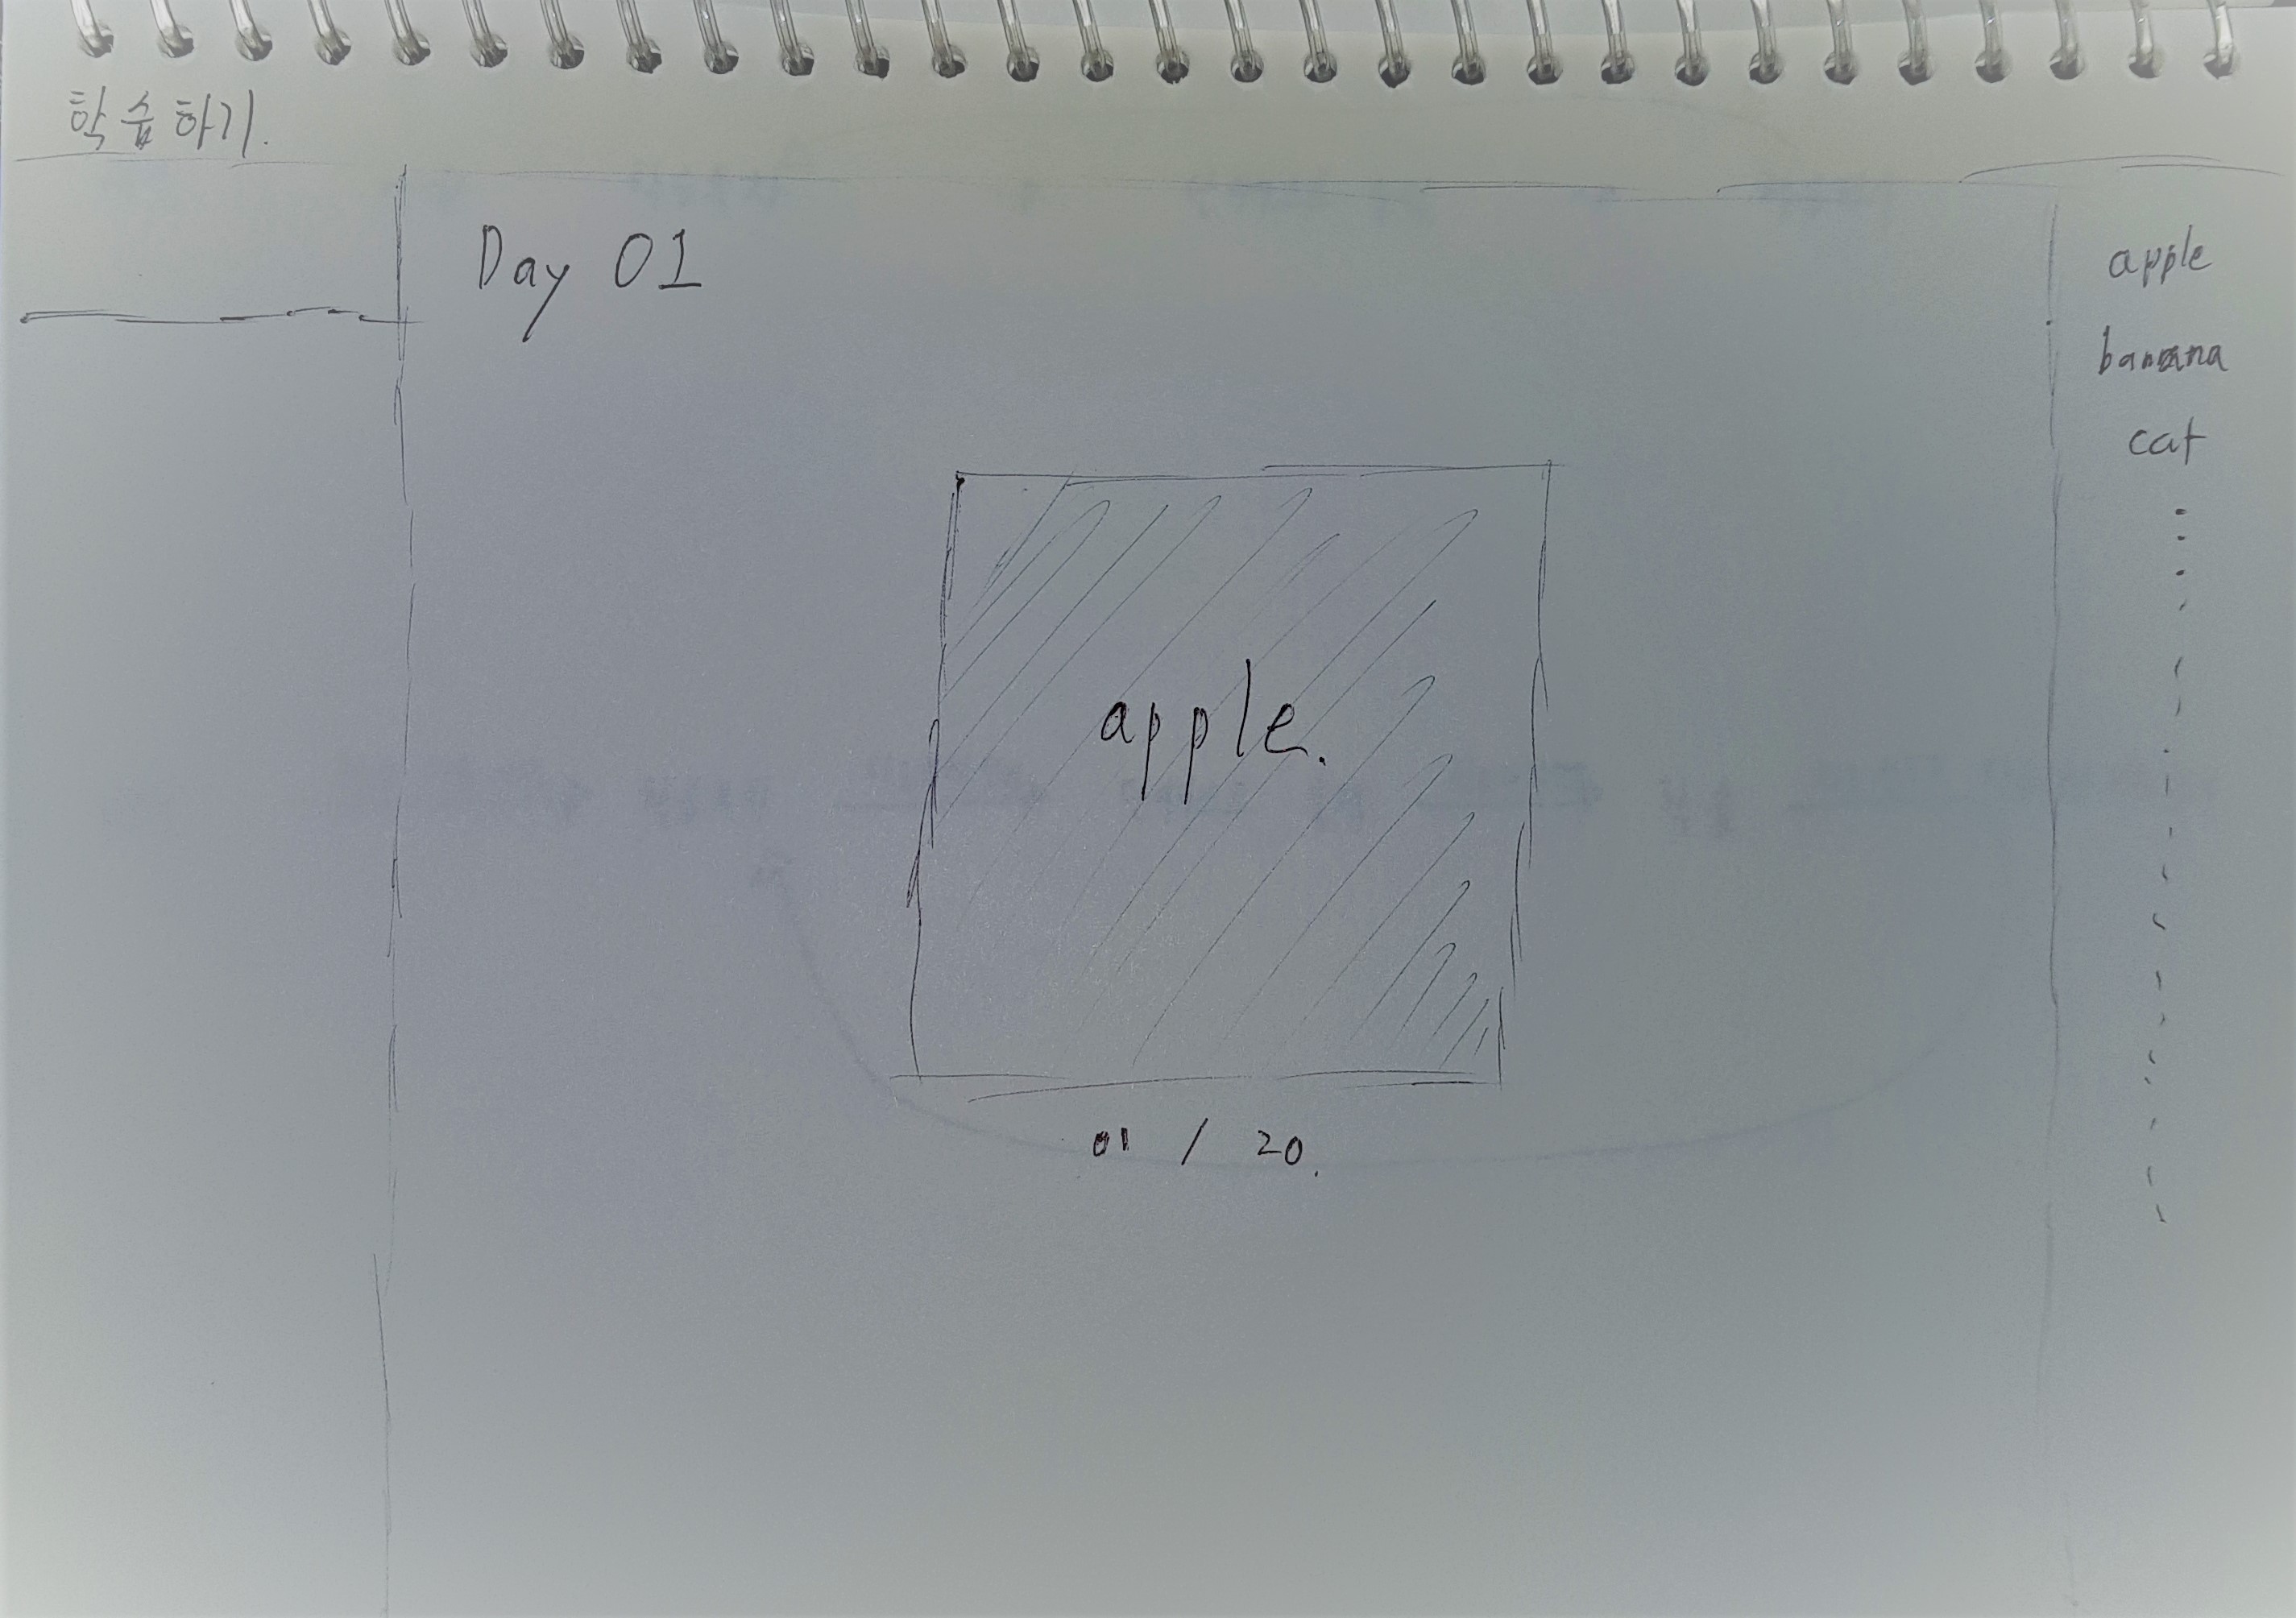 학습하기.
Day 01
apple.
01 / 20.
apple
banana
cat